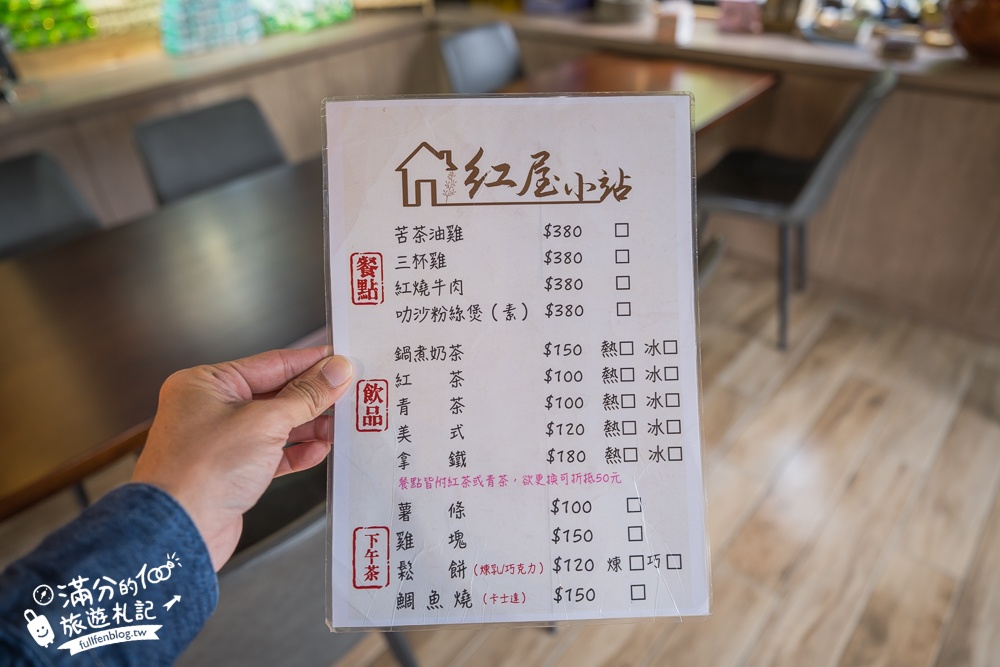 紅屋小站
餐點
苦茶油雞 $380 □
三杯雞 $380 □
紅燒牛肉 $380 □
叻沙粉絲煲(素) $380 □
飲品
鍋煮奶茶 $150 熱□ 冰□
紅茶 $100 熱□ 冰□
青茶 $100 熱□ 冰□
美式 $120 熱□ 冰□
拿鐵 $180 熱□ 冰□
餐點皆附紅茶或青茶,欲更換可折抵50元
下午茶
薯條 $100 □
雞塊 $150 □
鬆餅(煉乳/巧克力) $120 煉□ 巧□
鯛魚燒(卡士達) $150 □
滿分的100
旅遊札記
fullfenblog.tw